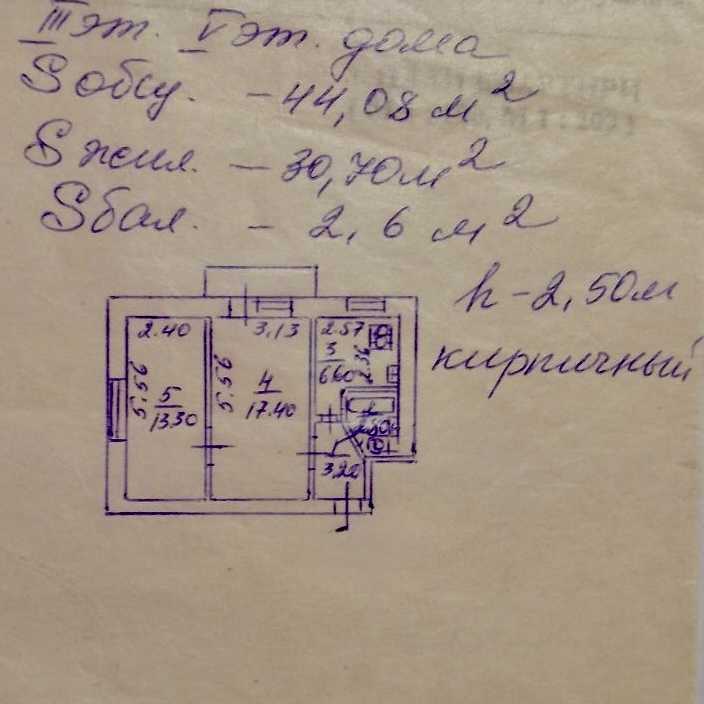 III эт. V эт. дома
S общ. - 44,08 м²
S жил. - 30,70 м²
S бал. - 2,6 м²
h - 2,50м
кирпичный
2.40
3.13
2.57
5.56
5
13.30
5.56
4
17.40
3
6.60
2.36
3.22